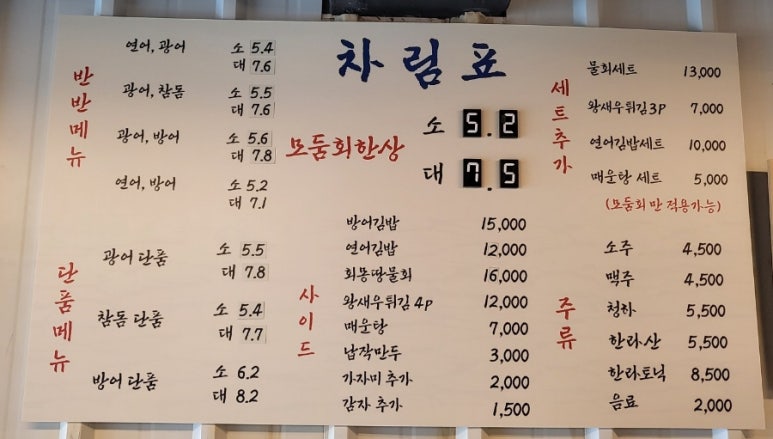 차림표
반반메뉴
연어, 광어 소 5.4
대 7.6
광어, 참돔 소 5.5
대 7.6
광어, 방어 소 5.6
대 7.8
연어, 방어 소 5.2
대 7.1
단품메뉴
광어 단품 소 5.5
대 7.8
참돔 단품 소 5.4
대 7.7
방어 단품 소 6.2
대 8.2
모둠회한상
소 5.2
대 7.5
사이드
방어김밥 15,000
연어김밥 12,000
회몽땅물회 16,000
왕새우튀김 4P 12,000
매운탕 7,000
납작만두 3,000
가자미 추가 2,000
감자 추가 1,500
세트추가
물회세트 13,000
왕새우튀김3P 7,000
연어김밥세트 10,000
매운탕 세트 5,000
(모둠회 만 적용가능)
주류
소주 4,500
맥주 4,500
청하 5,500
한라산 5,500
한라토닉 8,500
음료 2,000